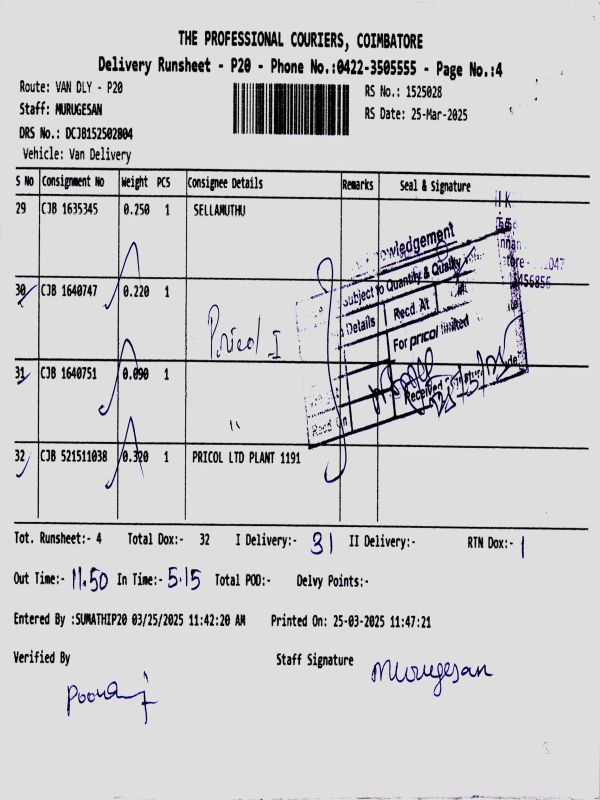 THE PROFESSIONAL COURIERS, COIMBATORE
Delivery Runsheet - P20 - Phone No.:0422-3505555 - Page No.:4
Route: VAN DLY - P20
RS No.: 1525028
Staff: MURUGESAN
RS Date: 25-Mar-2025
DRS No.: DCJB152502804
Vehicle: Van Delivery
S No Consignment No Weight PCS Consignee Details Remarks Seal & Signature
29 CJB 1635345 0.250 1 SELLAMUTHU
30 CJB 1640747 0.220 1
Pricol I
31 CJB 1640751 0.090 1
"
32 CJB 521511038 0.320 1 PRICOL LTD PLANT 1191
Subject to Quantity & Quality
Details Recd. At
For pricol limited
Received
Recd. On
Tot. Runsheet:- 4 Total Dox:- 32 I Delivery:- 31 II Delivery:- RTN Dox:- 1
Out Time:- 11.50 In Time:- 5.15 Total POD:- Delvy Points:-
Entered By :SUMATHIP20 03/25/2025 11:42:20 AM Printed On: 25-03-2025 11:47:21
Verified By
Staff Signature
Murugesan